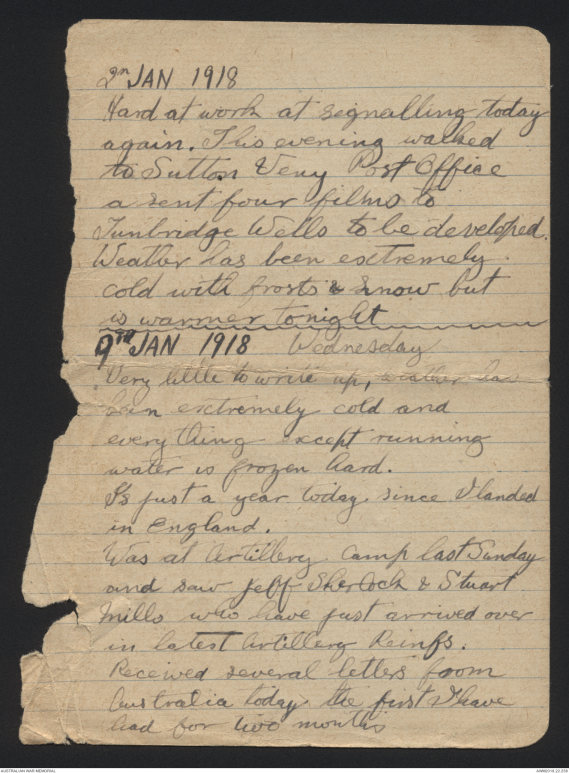 2n JAN 1918
Hard at work at segnalling today
again. This evening walked
to Sutton Veny Post Office
a sent four films to
Tunbridge Wells to be developed.
Weather has been esctremely
cold with frosts & snow but
is warmer tonight
9TH JAN 1918 Wednesday
Very little to write up, weather has
been esctremely cold and
everything except running
water is frozen hard.
Is just a year today since I landed
in England.
Was at Artillery camp last Sunday
and saw Jeff Sherlock & Stuart
Mills who have just arrived over
in latest Artillery Reinfs.
Received several letters from
Australia today the first I have
had for two months
AUSTRALIAN WAR MEMORIAL